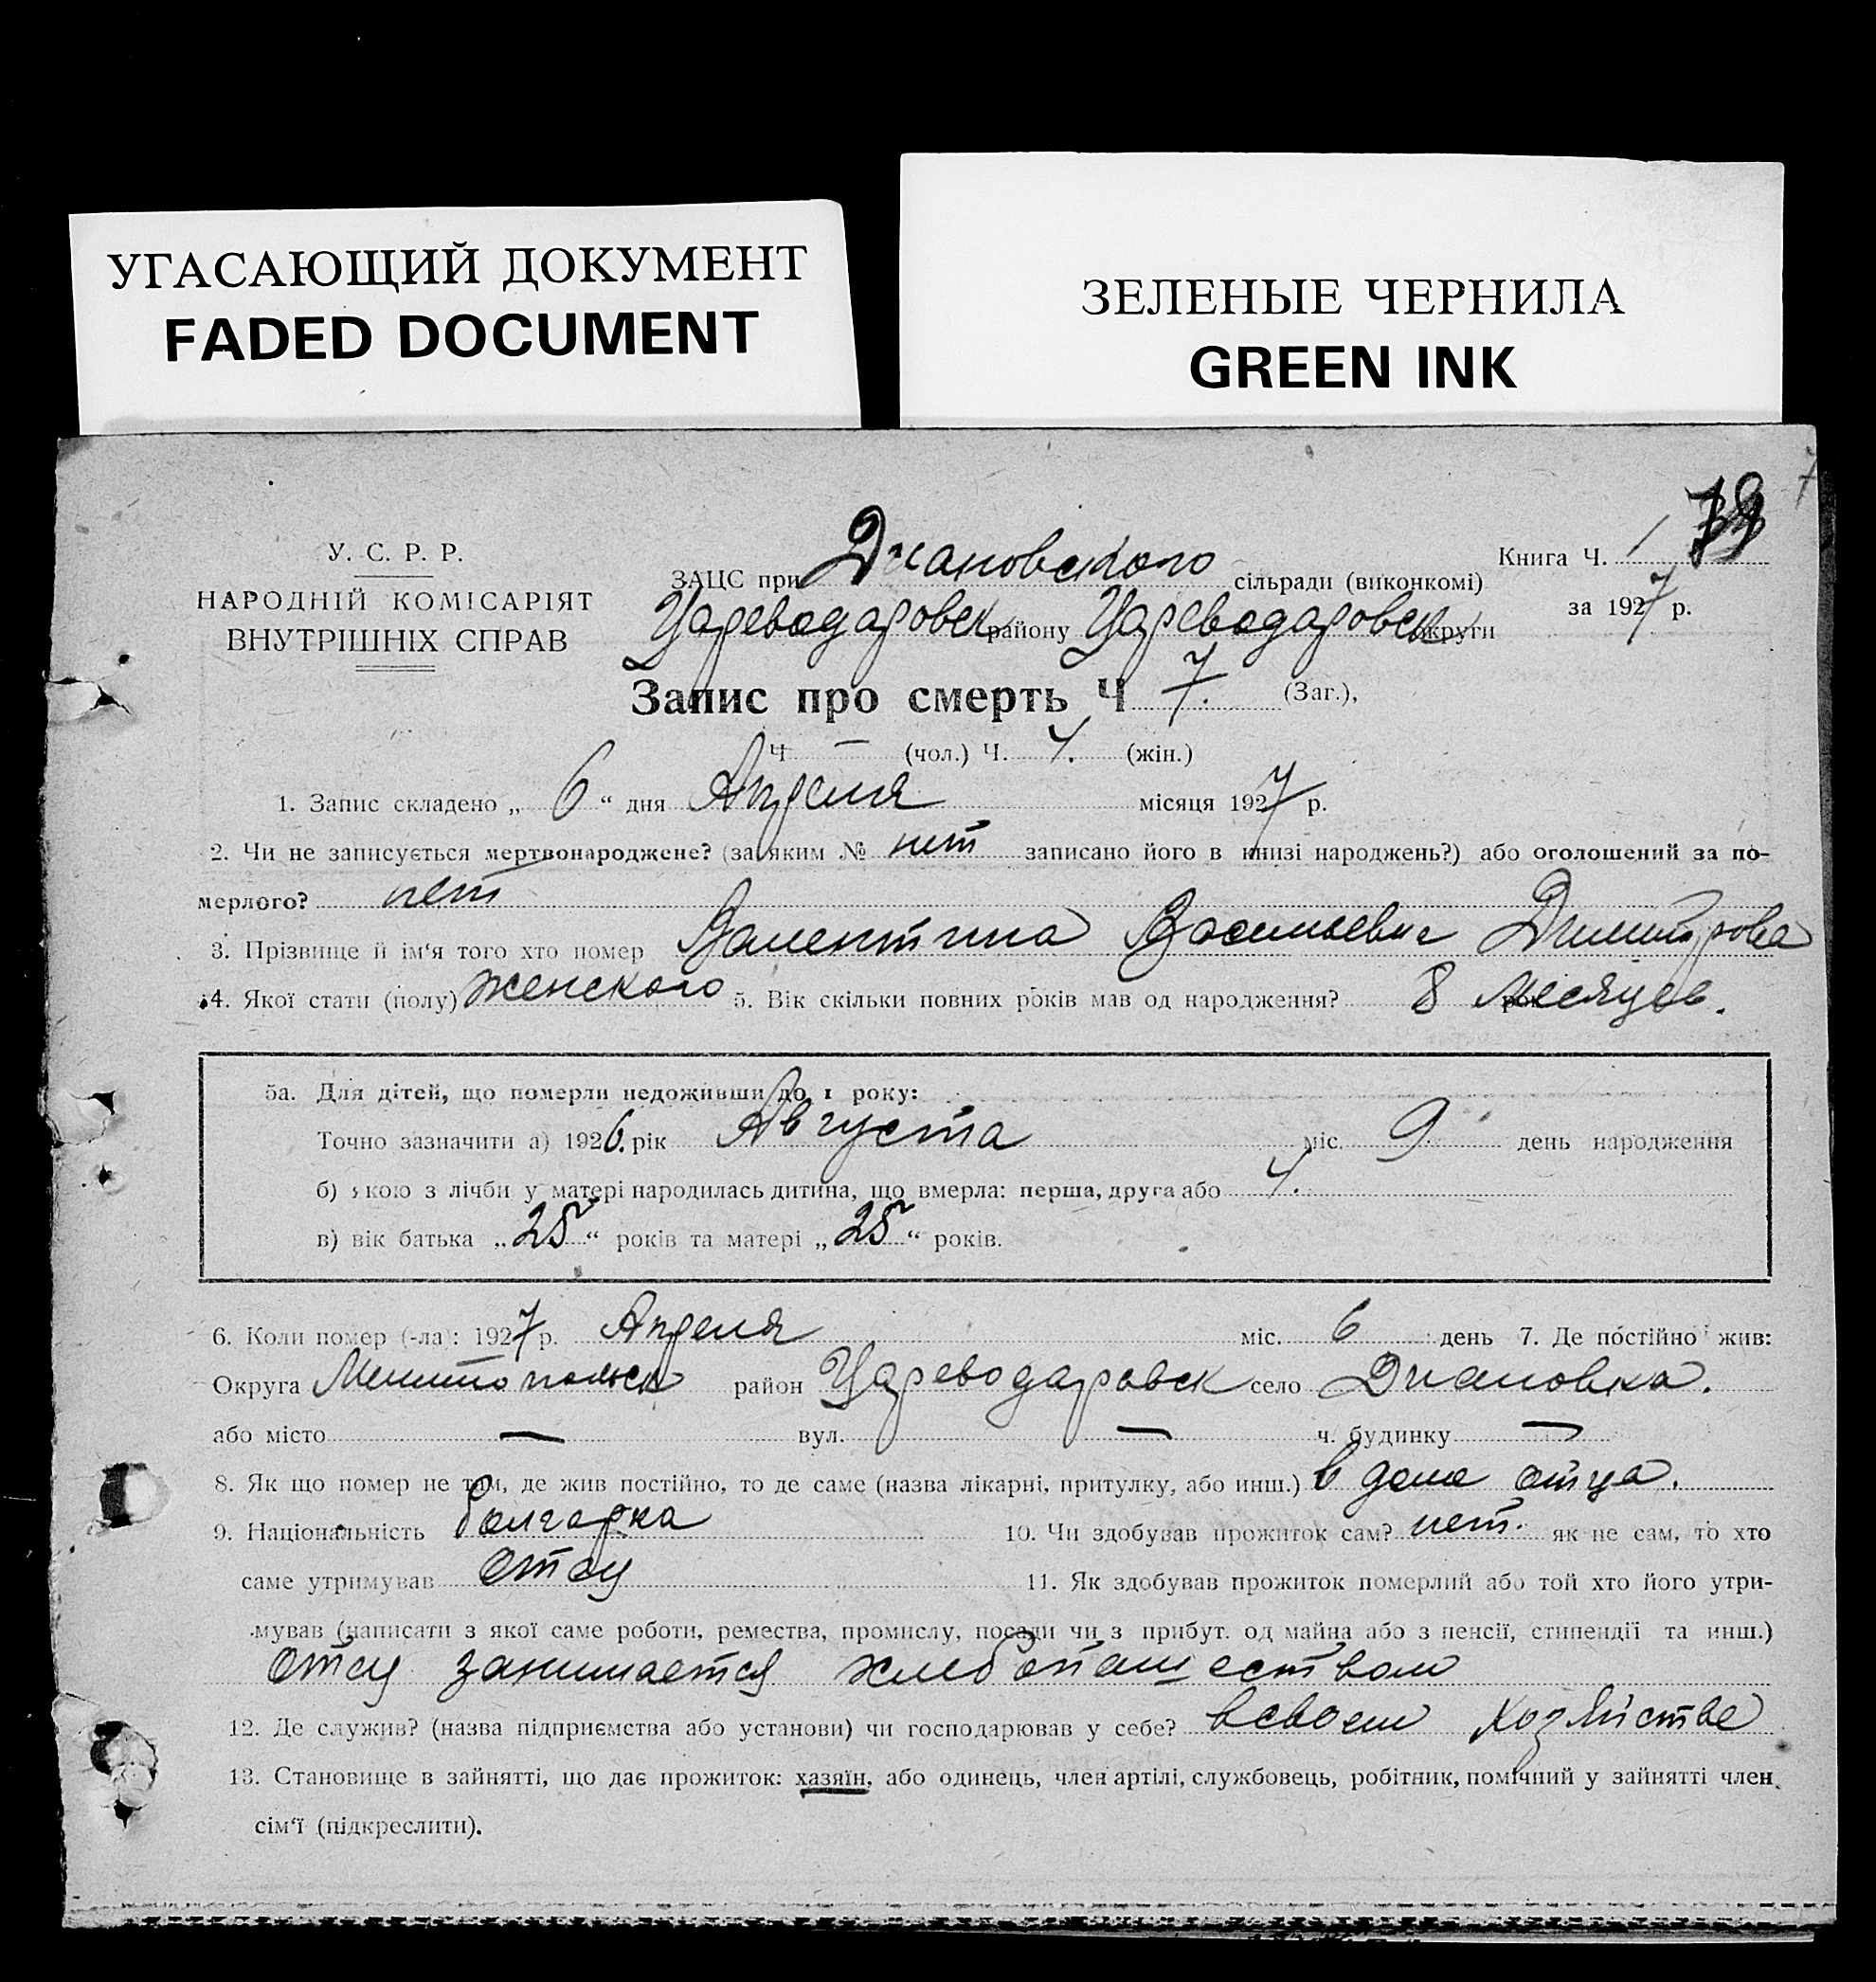 УГАСАЮЩИЙ ДОКУМЕНТ
FADED DOCUMENT
ЗЕЛЕНЫЕ ЧЕРНИЛА
GREEN INK
У. С. Р. Р.
НАРОДНІЙ КОМІСАРІЯТ
ВНУТРІШНІХ СПРАВ
Книга Ч. 1
за 1927 р.
ЗАЦС при Диановского сільради (виконкомі)
Цареводаровск району Цареводаровск округи
Запис про смерть Ч 7. (Заг.),
Ч — (чол.) Ч. 4. (жін.)
1. Запис складено „ 6 “ дня Апреля місяця 1927 р.
2. Чи не записується мертвонароджене? (за яким № нет записано його в книзі народжень?) або оголошений за по-
мерлого? нет
3. Прізвище й ім‘я того хто помер Валентина Васильевна Димитрова
4. Якої стати (полу) женского 5. Вік скільки повних років мав од народження? 8 месяцев.
5а. Для дітей, що померли недоживши до 1 року:
Точно зазначити а) 1926. рік Августа міс. 9 день народження
б) якою з лічби у матері народилась дитина, що вмерла: перша, друга або 4.
в) вік батька „25“ років та матері „25“ років.
6. Коли помер (-ла): 1927 р. Апреля міс. 6 день 7. Де постійно жив:
Округа Мелитопольск район Цареводаровск село Диановка.
або місто — вул. — ч. будинку —
8. Як що помер не там, де жив постійно, то де саме (назва лікарні, притулку, або инш.) в доме отца.
9. Національність болгарка 10. Чи здобував прожиток сам? нет. як не сам, то хто
саме утримував отец 11. Як здобував прожиток померлий або той хто його утри-
мував (написати з якої саме роботи, ремества, промислу, посади чи з прибут. од майна або з пенсії, стипендії та инш.)
Отец занимается хлебопашеством
12. Де служив? (назва підприємства або установи) чи господарював у себе? в своем хозяйстве
13. Становище в зайнятті, що дає прожиток: хазяїн, або одинець, член артілі, службовець, робітник, помічний у зайнятті член
сім‘ї (підкреслити).